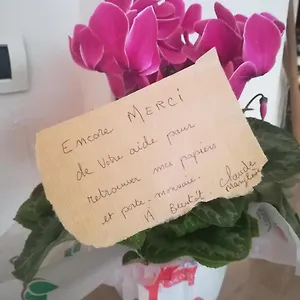 Encore MERCI
de votre aide pour
retrouver mes papiers
et porte-monnaie.
A Bientôt Claude